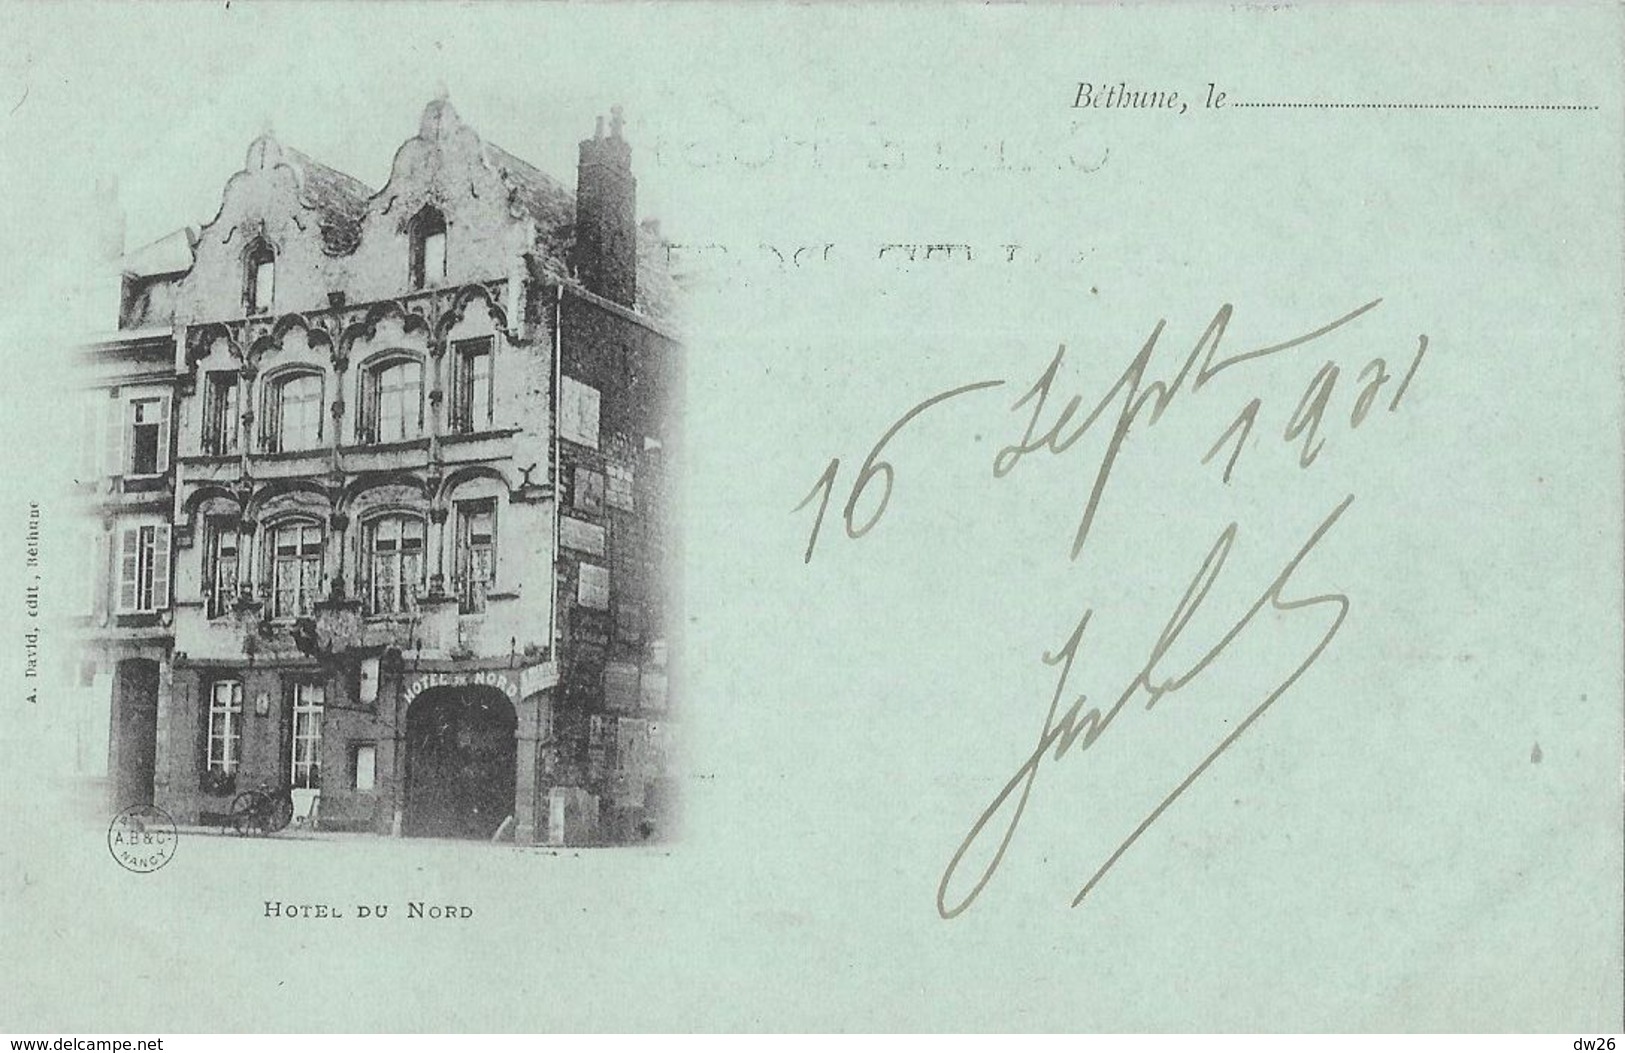 Béthune, le
16 Sept 1901
HOTEL DU NORD
A. David, édit, Béthune
A.B & Cie
NANCY
HOTEL DU NORD
www.delcampe.net
dw26